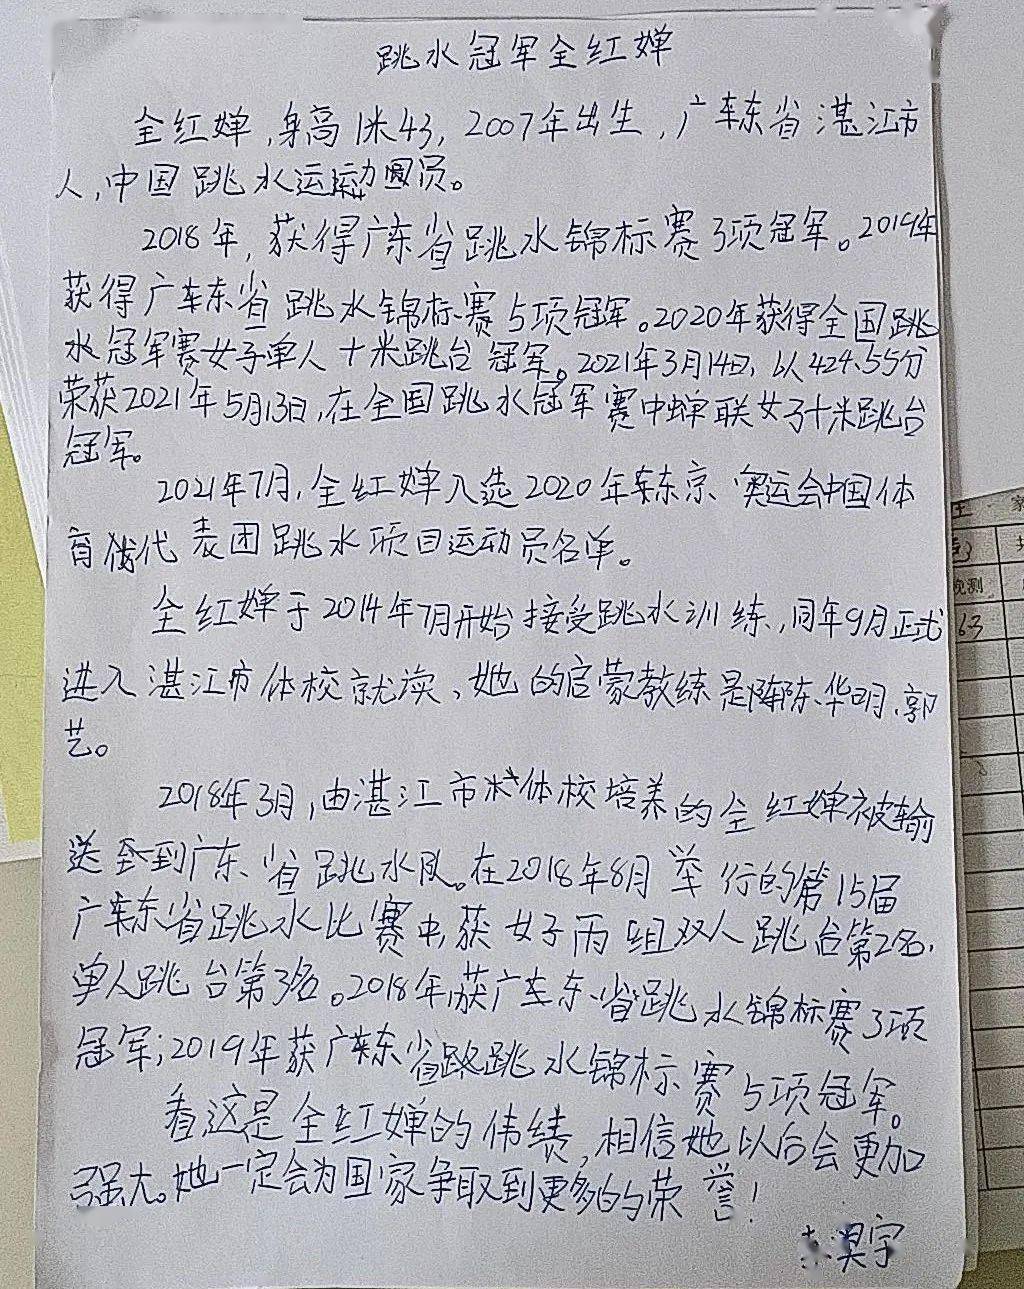 跳水冠军全红婵
全红婵,身高1米43,2007年出生,广东省湛江市
人,中国跳水运动员。
2018年,获得广东省跳水锦标赛3项冠军。2019年
获得广东省跳水锦标赛5项冠军。2020年获得全国跳
水冠军赛女子单人十米跳台冠军。2021年3月14日,以424.55分
荣获2021年5月13日,在全国跳水冠军赛中蝉联女子十米跳台
冠军。
2021年7月,全红婵入选2020年东京奥运会中国体
育代表团跳水项目运动员名单。
全红婵于2014年7月开始接受跳水训练,同年9月正式
进入湛江市体校就读、她的启蒙教练是陈华明、郭
艺。
2018年3月,由湛江市体校培养的全红婵被输
送到广东省跳水队。在2018年8月举行的第15届
广东省跳水比赛中,获女子丙组双人跳台第2名,
单人跳台第3名。2018年获广东省跳水锦标赛3项
冠军;2019年获广东省跳水锦标赛5项冠军。
看,这是全红婵的伟绩,相信她以后会更加
强大。她一定会为国家争取到更多的荣誉!
宇
家
晚测
63